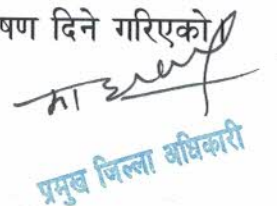 षण दिने गरिएको।
प्रमुख जिल्ला अधिकारी